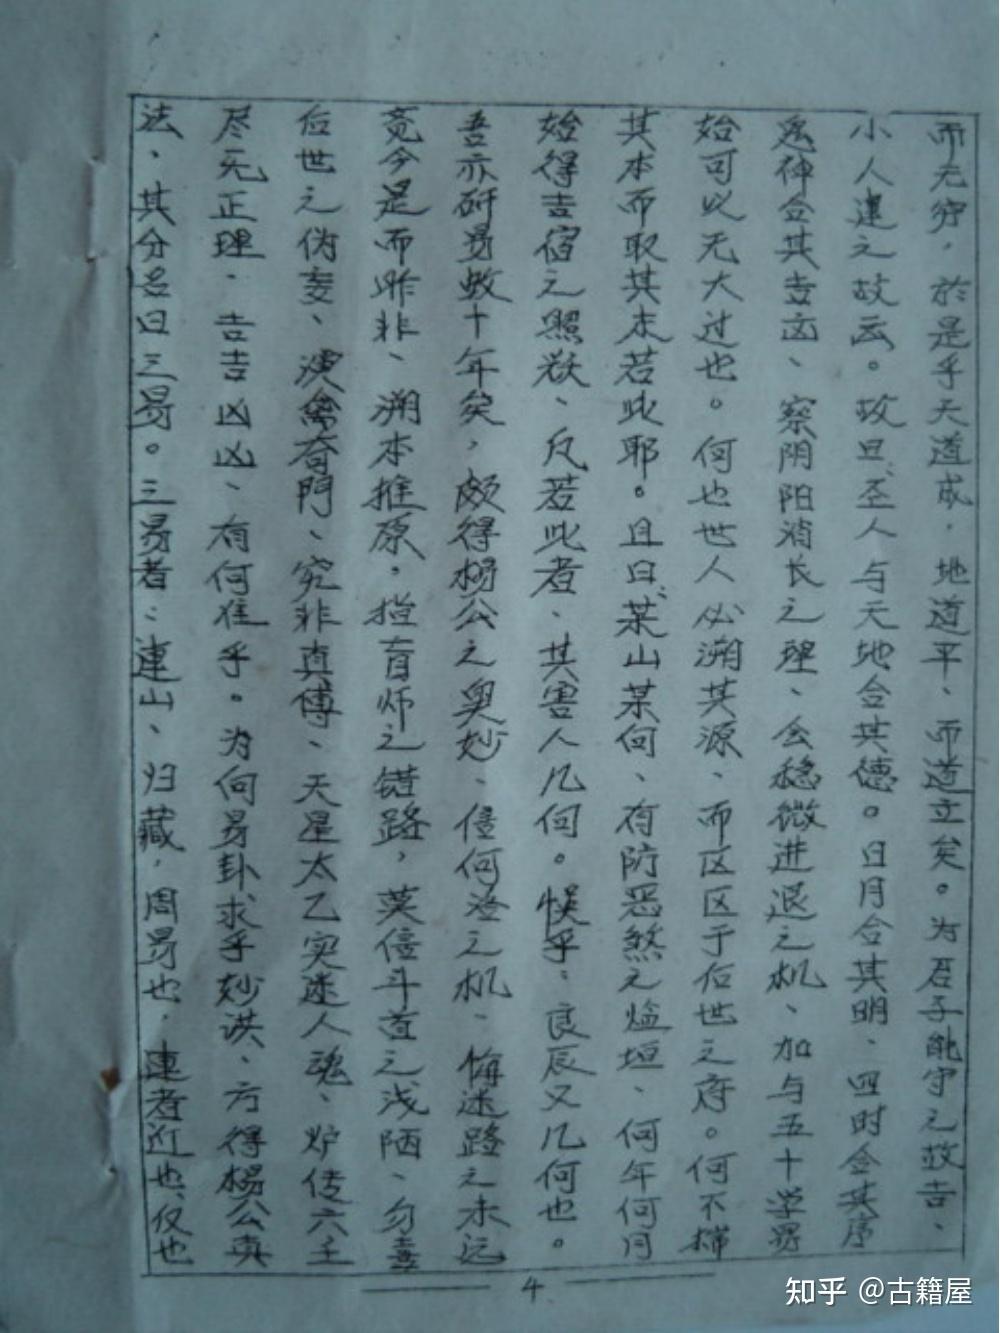 而无穷，於是乎天道成，地道平、而道立矣。为君子能守之故吉、
小人违之故凶。故曰、丕人与天地合其德。日月合其明、四时合其序
鬼神合其吉凶、察阴阳消长之理、会稳微进退之机、加与五十学易
始可以无大过也。何也世人必溯其源、而区区于后世之府。何不揣
其本而取其末若此耶。且曰、某山某向、有防恶煞之 垣、何年何月
始得吉宿之照 、凡若此者、其害人几何。悮乎：良辰又几何也。
吾亦研易数十年矣，颇得杨公之奥妙、信何 之机、悔迷路之未远
竟今是而昨非、溯本推原，指盲师之错路，莫信斗首之浅陋、勿喜
后世之伪妄、演禽奇門、究非真傳、天星太乙实迷人魂、炉传六壬
尽无正理、吉吉凶凶、有何准乎。为何易卦求乎妙 、方得杨公真
法、其分名曰三易。三易者：連山、归藏，周易也，連者近也、仅也
4
知乎 @古籍屋